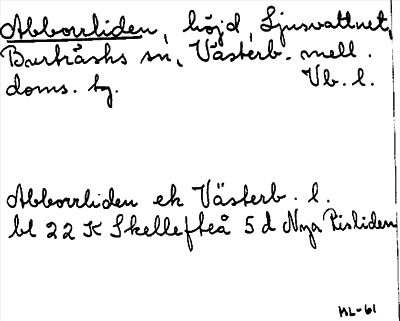 Abborrliden, höjd, Ljusvattnet,
Burträsks sn, Västerb. mell.
doms. tg. Vb. l.
Abborrliden ek Västerb. l.
bl 22 K Skellefteå 5 d Nya Pisliden
KL-61